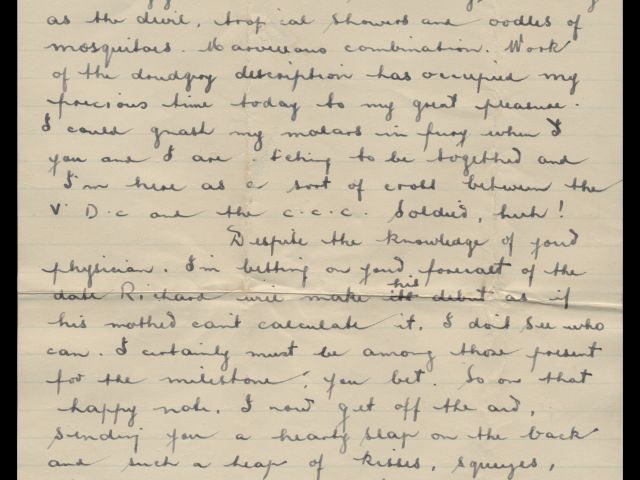 as the devil, tropical showers and oodles of
mosquitoes. Marvellous combination. Work
of the drudgry description has occupied my
precious time today to my great pleasure.
I could gnash my molars in fury when I
you and I are itching to be together and
I'm here as a sort of cross between the
V.D.C and the C.C.C. Soldier, huh!
Despite the knowledge of your
physician. I'm betting on your forecast of the
date Richard will make his debut as if
his mother can't calculate it, I don't see who
can. I certainly must be among those present
for the milestone, you bet. So on that
happy note, I now get off the air,
sending you a hearty slap on the back
and such a heap of kisses, squeezes,